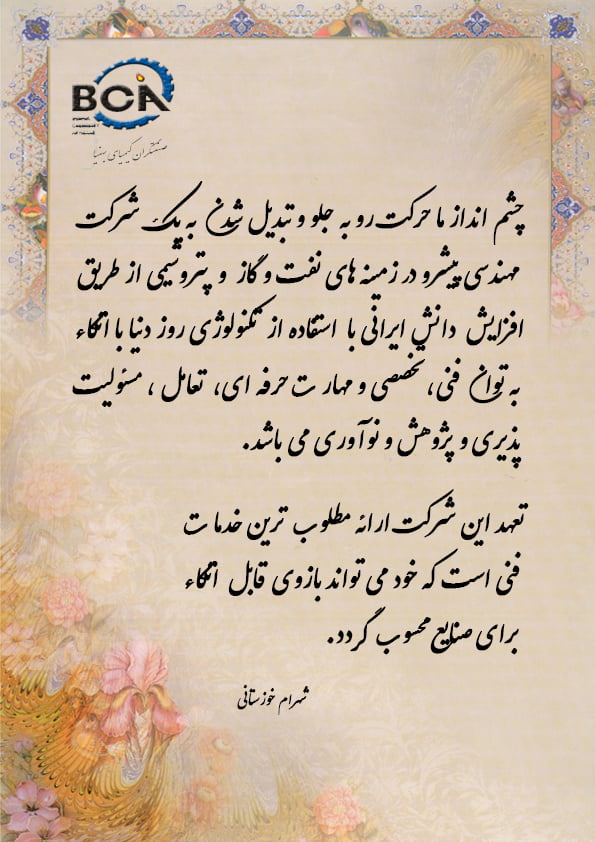 BCA
صنعتگران کیمیای بینا
چشم انداز ما حرکت رو به جلو و تبدیل شدن به یک شرکت
مهندسی پیشرو در زمینه های نفت و گاز و پتروشیمی از طریق
افزایش دانش ایرانی با استفاده از تکنولوژی روز دنیا با اتکاء
به توان فنی، تخصصی و مهارت حرفه ای، تعامل، مسئولیت
پذیری و پژوهش و نوآوری می باشد.
تعهد این شرکت ارائه مطلوب ترین خدمات
فنی است که خود می تواند بازوی قابل اتکاء
برای صنایع محسوب گردد.
شهرام خوزستانی